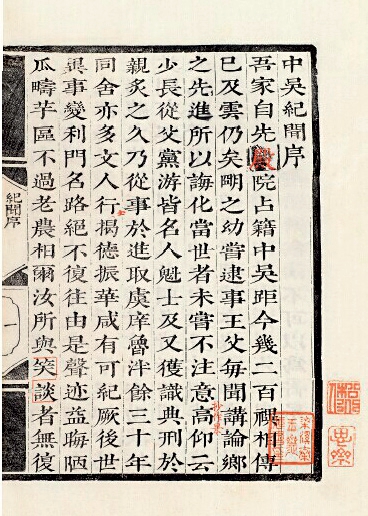 中吳紀聞序
吾家自先殿院占籍中吳距今幾二百禩相傳
巳及雲仍矣明之幼嘗逮事王父每聞講論鄉
之先進所以誨化當世者未嘗不注意高仰云
少長從父黨游皆名人魁士及又獲識典刑於
親炙之久乃從事於進取虞庠魯泮餘三十年
同舍亦多文人行揭德振華咸有可紀厥後世
與事變利門名路絕不復往由是聲迹益晦陋
瓜疇芋區不過老農相爾汝所與笑談者無復
紀聞序
一